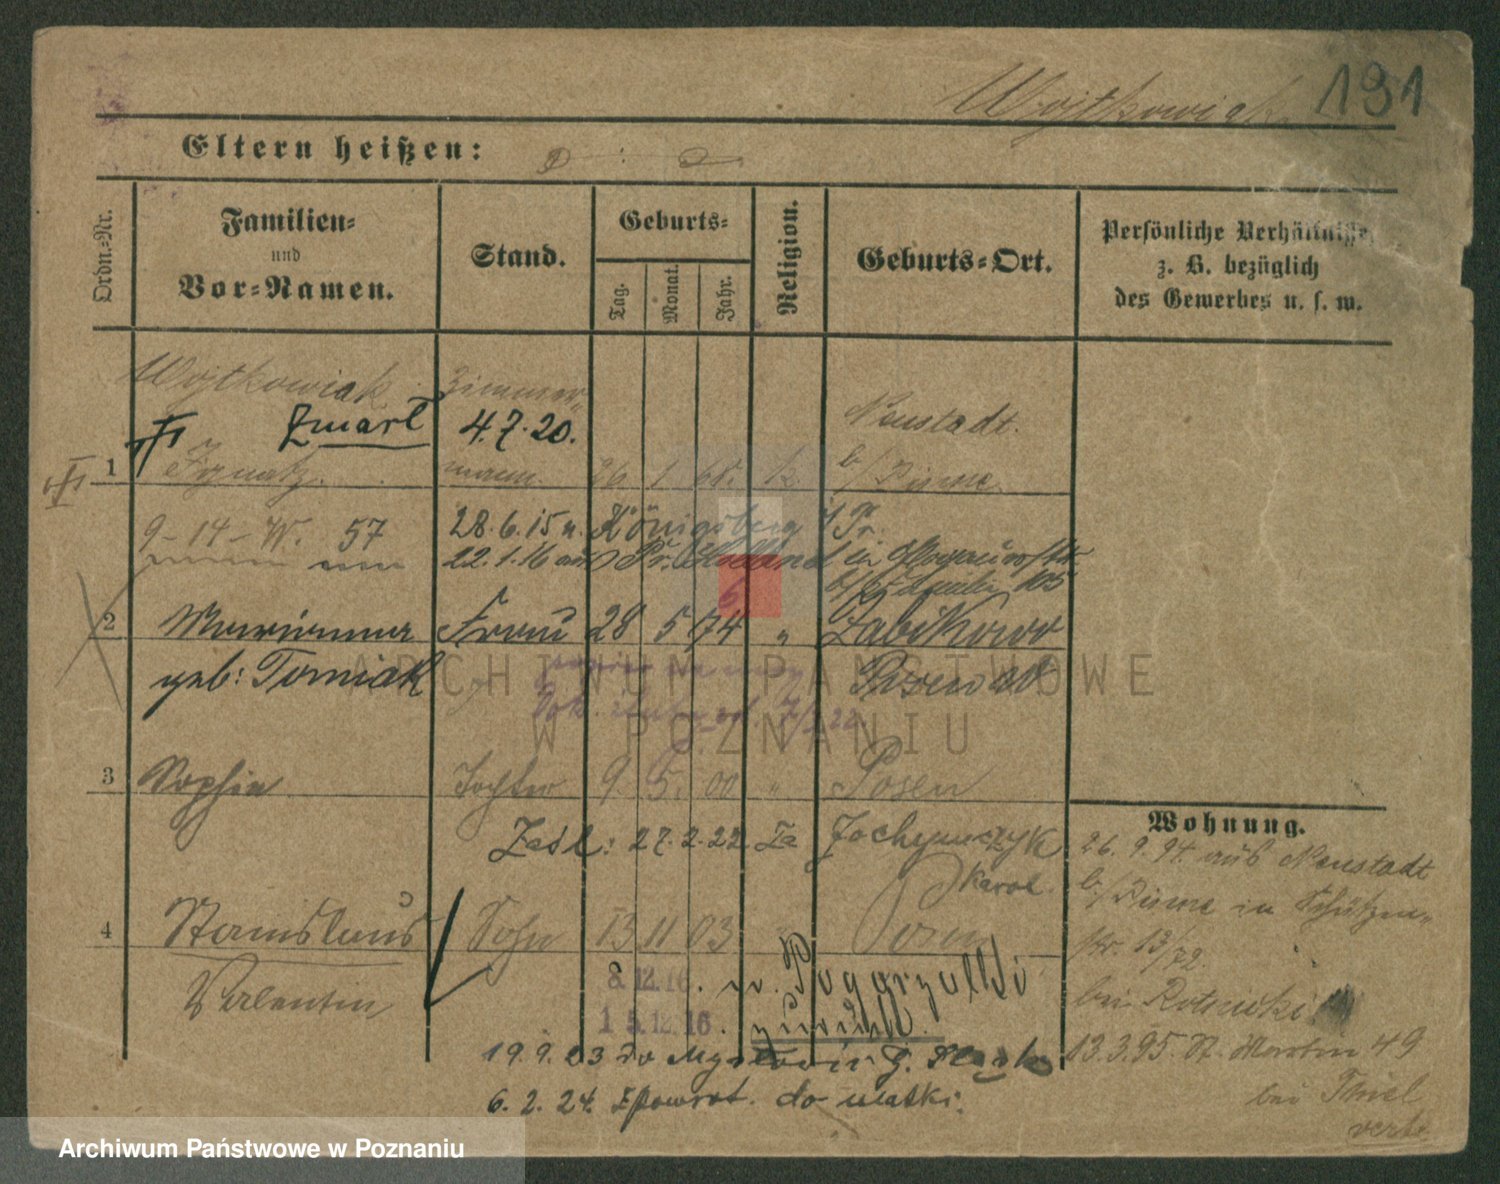 Wojtkowiak 191
Eltern heißen:
Ordn.-Nr.
Familien-
und
Vor-Namen.
Stand.
Geburts-
Tag.
Monat.
Jahr.
Religion.
Geburts-Ort.
Persönliche Verhältnisse,
z. B. bezüglich
des Gewerbes u. s. w.
Wojtkowiak Zimmer-
Zmarł 4.7.20. Neustadt.
1 Ignatz. mann. 26 1 68. k. b/Pinne.
9-14-W. 57 28.6.15 n. Königsberg Pr.
22.1.16 aus Pr. Holland in
105
2 Marianna Frau 28 5 74 " Zabikowo
geb: Tomiak Posen
ARCHIWUM PAŃSTWOWE
W POZNANIU
3 Sophia Tochter 9 5. 00 " Posen
Zaśl: 27.2.22 Za Jochemczyk
Karol.
4 Stanislaus Sohn 13 11 03 " Posen
Valentin
8.12.16 . n. Pogorzalki
15.12.16 . zurück.
19.9.23 do
6.2.24. z powrot. do matki.
Wohnung.
26.9.94. aus Neustadt
b/Pinne in Schützen-
str. 13/72.
bei
13.3.95. St. Martin 49
bei Thiel
verte
Archiwum Państwowe w Poznaniu